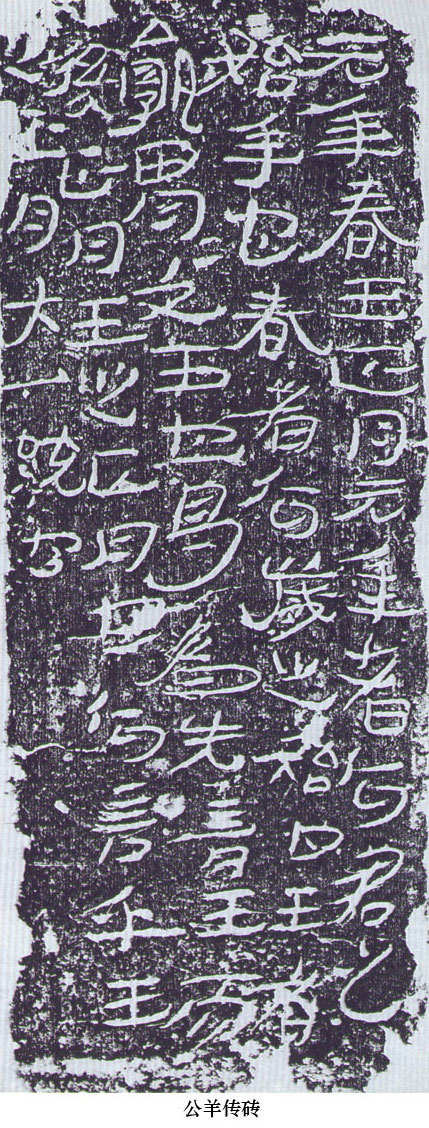 元年春王正月元年者何君之
始年也春者何歲之始也王者
孰胃＝文王也曷為先言王而
後正月王之正月也何言乎王
之正月大一統也
公羊传砖